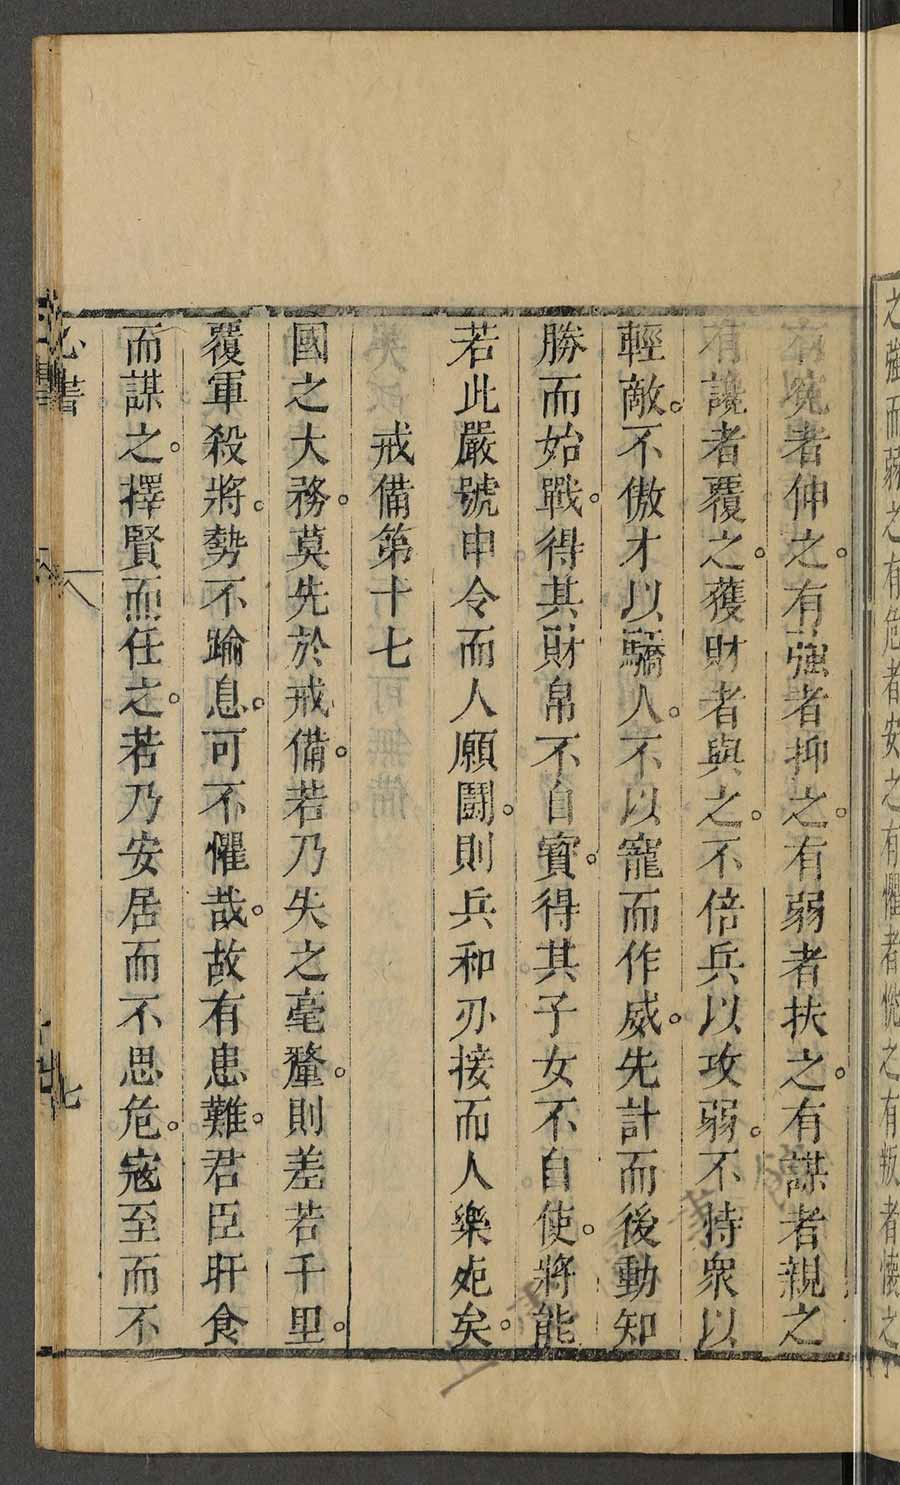 之強而弱之有危者安之有懼者悅之有叛者懷之
有寃者伸之。有強者抑之。有弱者扶之。有謀者親之
有讒者覆之。獲財者與之。不倍兵以攻弱。不恃衆以
輕敵。不傲才以驕人。不以寵而作威。先計而後動知
勝而始戰。得其財帛不自寳。得其子女不自使。將能
若此嚴號申令而人願鬪。則兵和刃接而人樂死矣。
戒備第十七
國之大務。莫先於戒備。若乃失之毫釐。則差若千里。
覆軍殺將。勢不踰息。可不懼哉。故有患難。君臣旰食
而謀之。擇賢而任之。若乃安居而不思危。寇至而不
心書
七